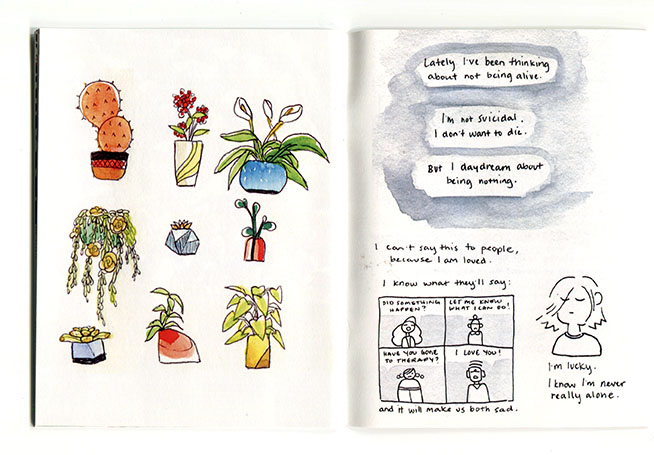 Lately I've been thinking
about not being alive.
I'm not suicidal.
I don't want to die.
But I daydream about
being nothing.
I can't say this to people,
because I am loved.
I know what they'll say:
DID SOMETHING
HAPPEN?
LET ME KNOW
WHAT I CAN DO!
HAVE YOU GONE
TO THERAPY?
I LOVE YOU!
and it will make us both sad.
I'm lucky.
I know I'm never
really alone.